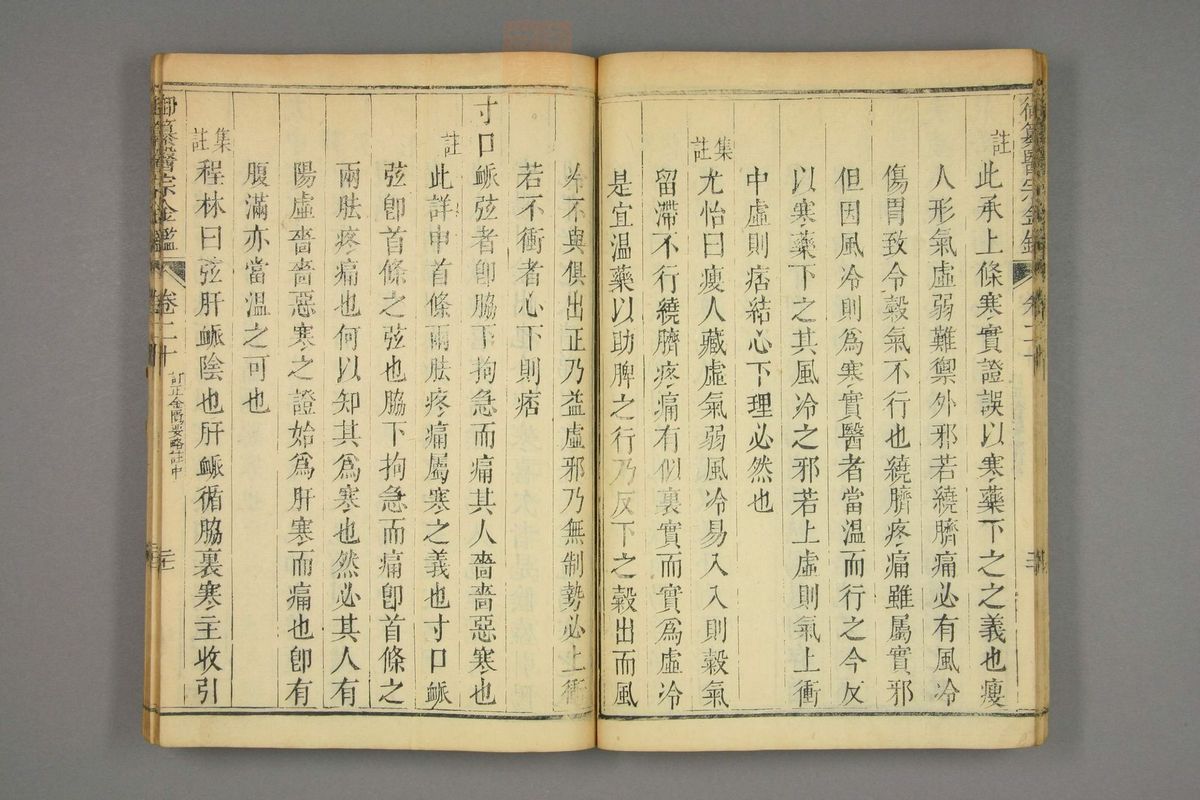 御纂醫宗金鑑
卷二十
註
此承上條寒實證誤以寒藥下之之義也瘦
人形氣虛弱難禦外邪若繞臍痛必有風冷
傷胃致令穀氣不行也繞臍疼痛雖屬實邪
但因風冷則爲寒實醫者當溫而行之今反
以寒藥下之其風冷之邪若上虛則氣上衝
中虛則痞結心下理必然也
集註
尤怡曰瘦人藏虛氣弱風冷易入入則穀氣
留滯不行繞臍疼痛有似裏實而實爲虛冷
是宜溫藥以助脾之行乃反下之穀出而風
冷不與俱出正乃益虛邪乃無制勢必上衝
若不衝者心下則痞
寸口脈弦者卽脇下拘急而痛其人嗇嗇惡寒也
註
此詳申首條兩胠疼痛屬寒之義也寸口脈
弦卽首條之弦也脇下拘急而痛卽首條之
兩胠疼痛也何以知其爲寒也然必其人有
陽虛嗇嗇惡寒之證始爲肝寒而痛也卽有
腹滿亦當溫之可也
集註
程林曰弦肝脈陰也肝脈循脇裏寒主收引
御纂醫宗金鑑
卷二十
訂正金匱要略註中